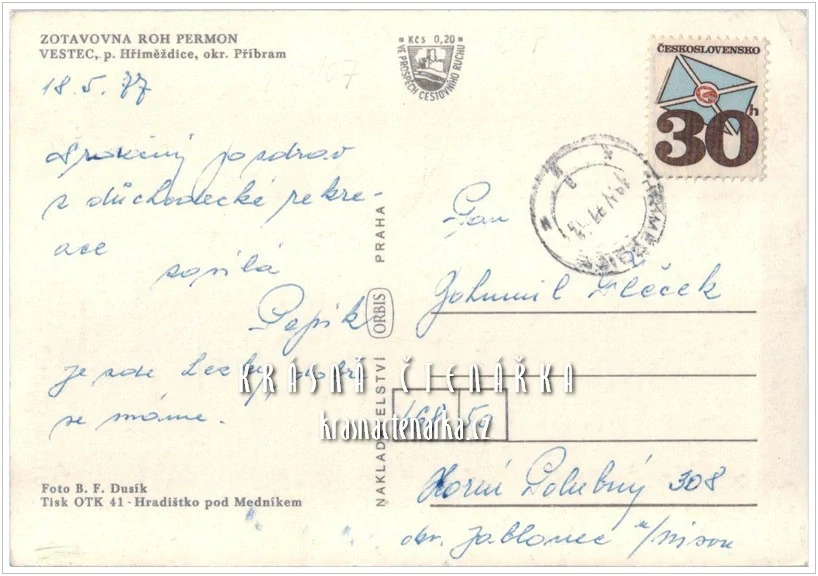 ZOTAVOVNA ROH PERMON
VESTEC, p. Hřiměždice, okr. Příbram
18. 5. 77
Srdečný pozdrav
z důchodecké rekre-
ace
zasílá
Pepík
je zde hezky, dobře
se máme.
Foto B. F. Dusík
Tisk OTK 41 - Hradištko pod Medníkem
Kčs 0,20
VE PROSPĚCH CESTOVNÍHO RUCHU
NAKLADATELSTVÍ ORBIS PRAHA
ČESKOSLOVENSKO
30h
Pan
Bohumil
468 59
Horní Polubný 308
okr. Jablonec n/Nisou
KRÁSNÁ ČTENÁŘKA
krasnactenarka.cz